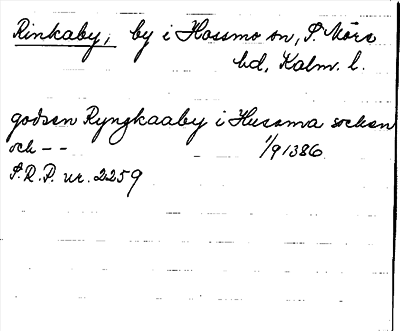 Rinkaby, by i Hossmo sn, S. Möre
hd, Kalm. l.
godsen Ryngkaaby i Hussma socken
och - - 1/9 1386
S.R.P. nr. 2259